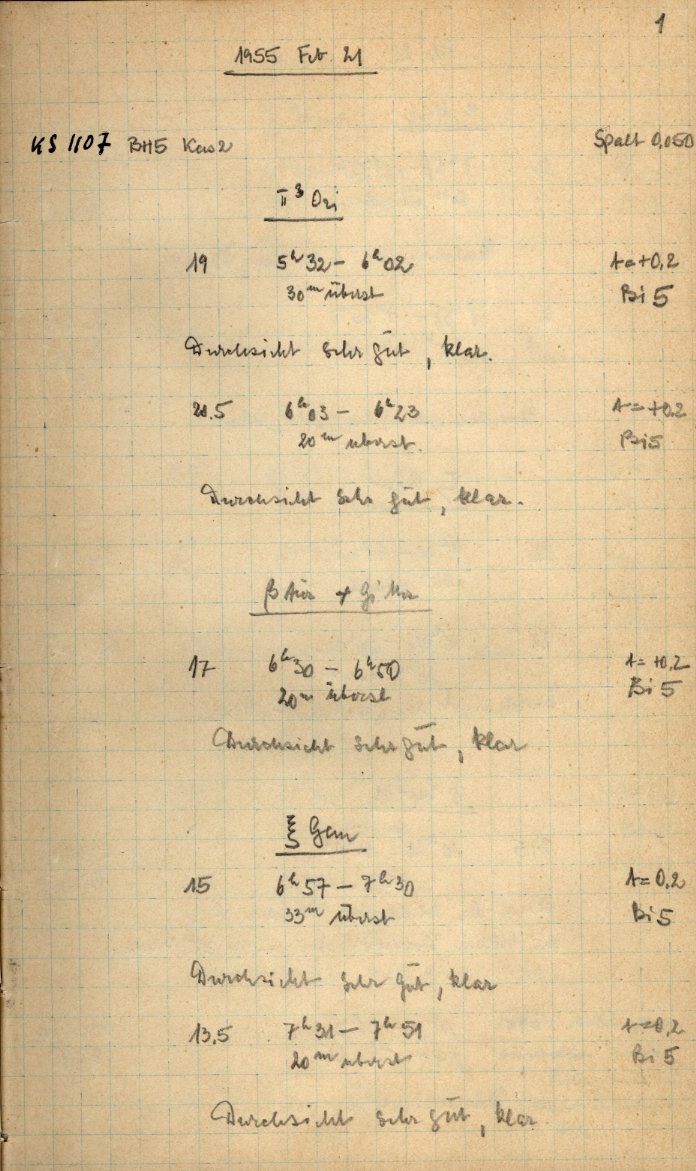 1
1955 Feb. 21
KS 1107 BH5 Kas2 Spalt 0,050
π³ Ori
19 5ʰ32 – 6ʰ02 A=+0,2
30ᵐ überst Bi 5
Durchsicht sehr gūt, klar.
20.5 6ʰ03 – 6ʰ23 A=+0,2
20ᵐ überst. Bi5
Durchsicht sehr gūt, klar.
β Aūr
17 6ʰ30 – 6ʰ50 A=+0,2
20ᵐ überst Bi 5
Durchsicht sehr gūt, klar
ξ Gem
15 6ʰ57 – 7ʰ30 A=0,2
33ᵐ überst Bi5
Durchsicht sehr gūt, klar
13,5 7ʰ31 – 7ʰ51 A=0,2
20ᵐ überst Bi 5
Durchsicht sehr gūt, klar.